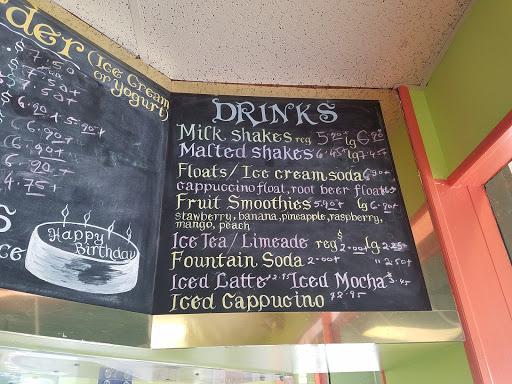 der (Ice Cream
or Yogurt)
$7.50
7.50+
7.50+
6.90+ 5.90+
6.90+
6.90+
6.90+
4.75+
Happy
Birthday
DRINKS
Milk shakes reg 5.90+ lg 6.90
Malted shakes 6.45+ lg 7.45+
Floats/Ice cream soda 6.90+
cappuccino float, root beer float
Fruit Smoothies 5.90+ lg 6.90+
stawberry, banana, pineapple, raspberry,
mango, peach
Ice Tea/Limeade reg $2.00+ lg 2.25+
Fountain Soda 2.00+ " 2.50+
Iced Latte 2.95 Iced Mocha $3.45
Iced Cappucino $2.95